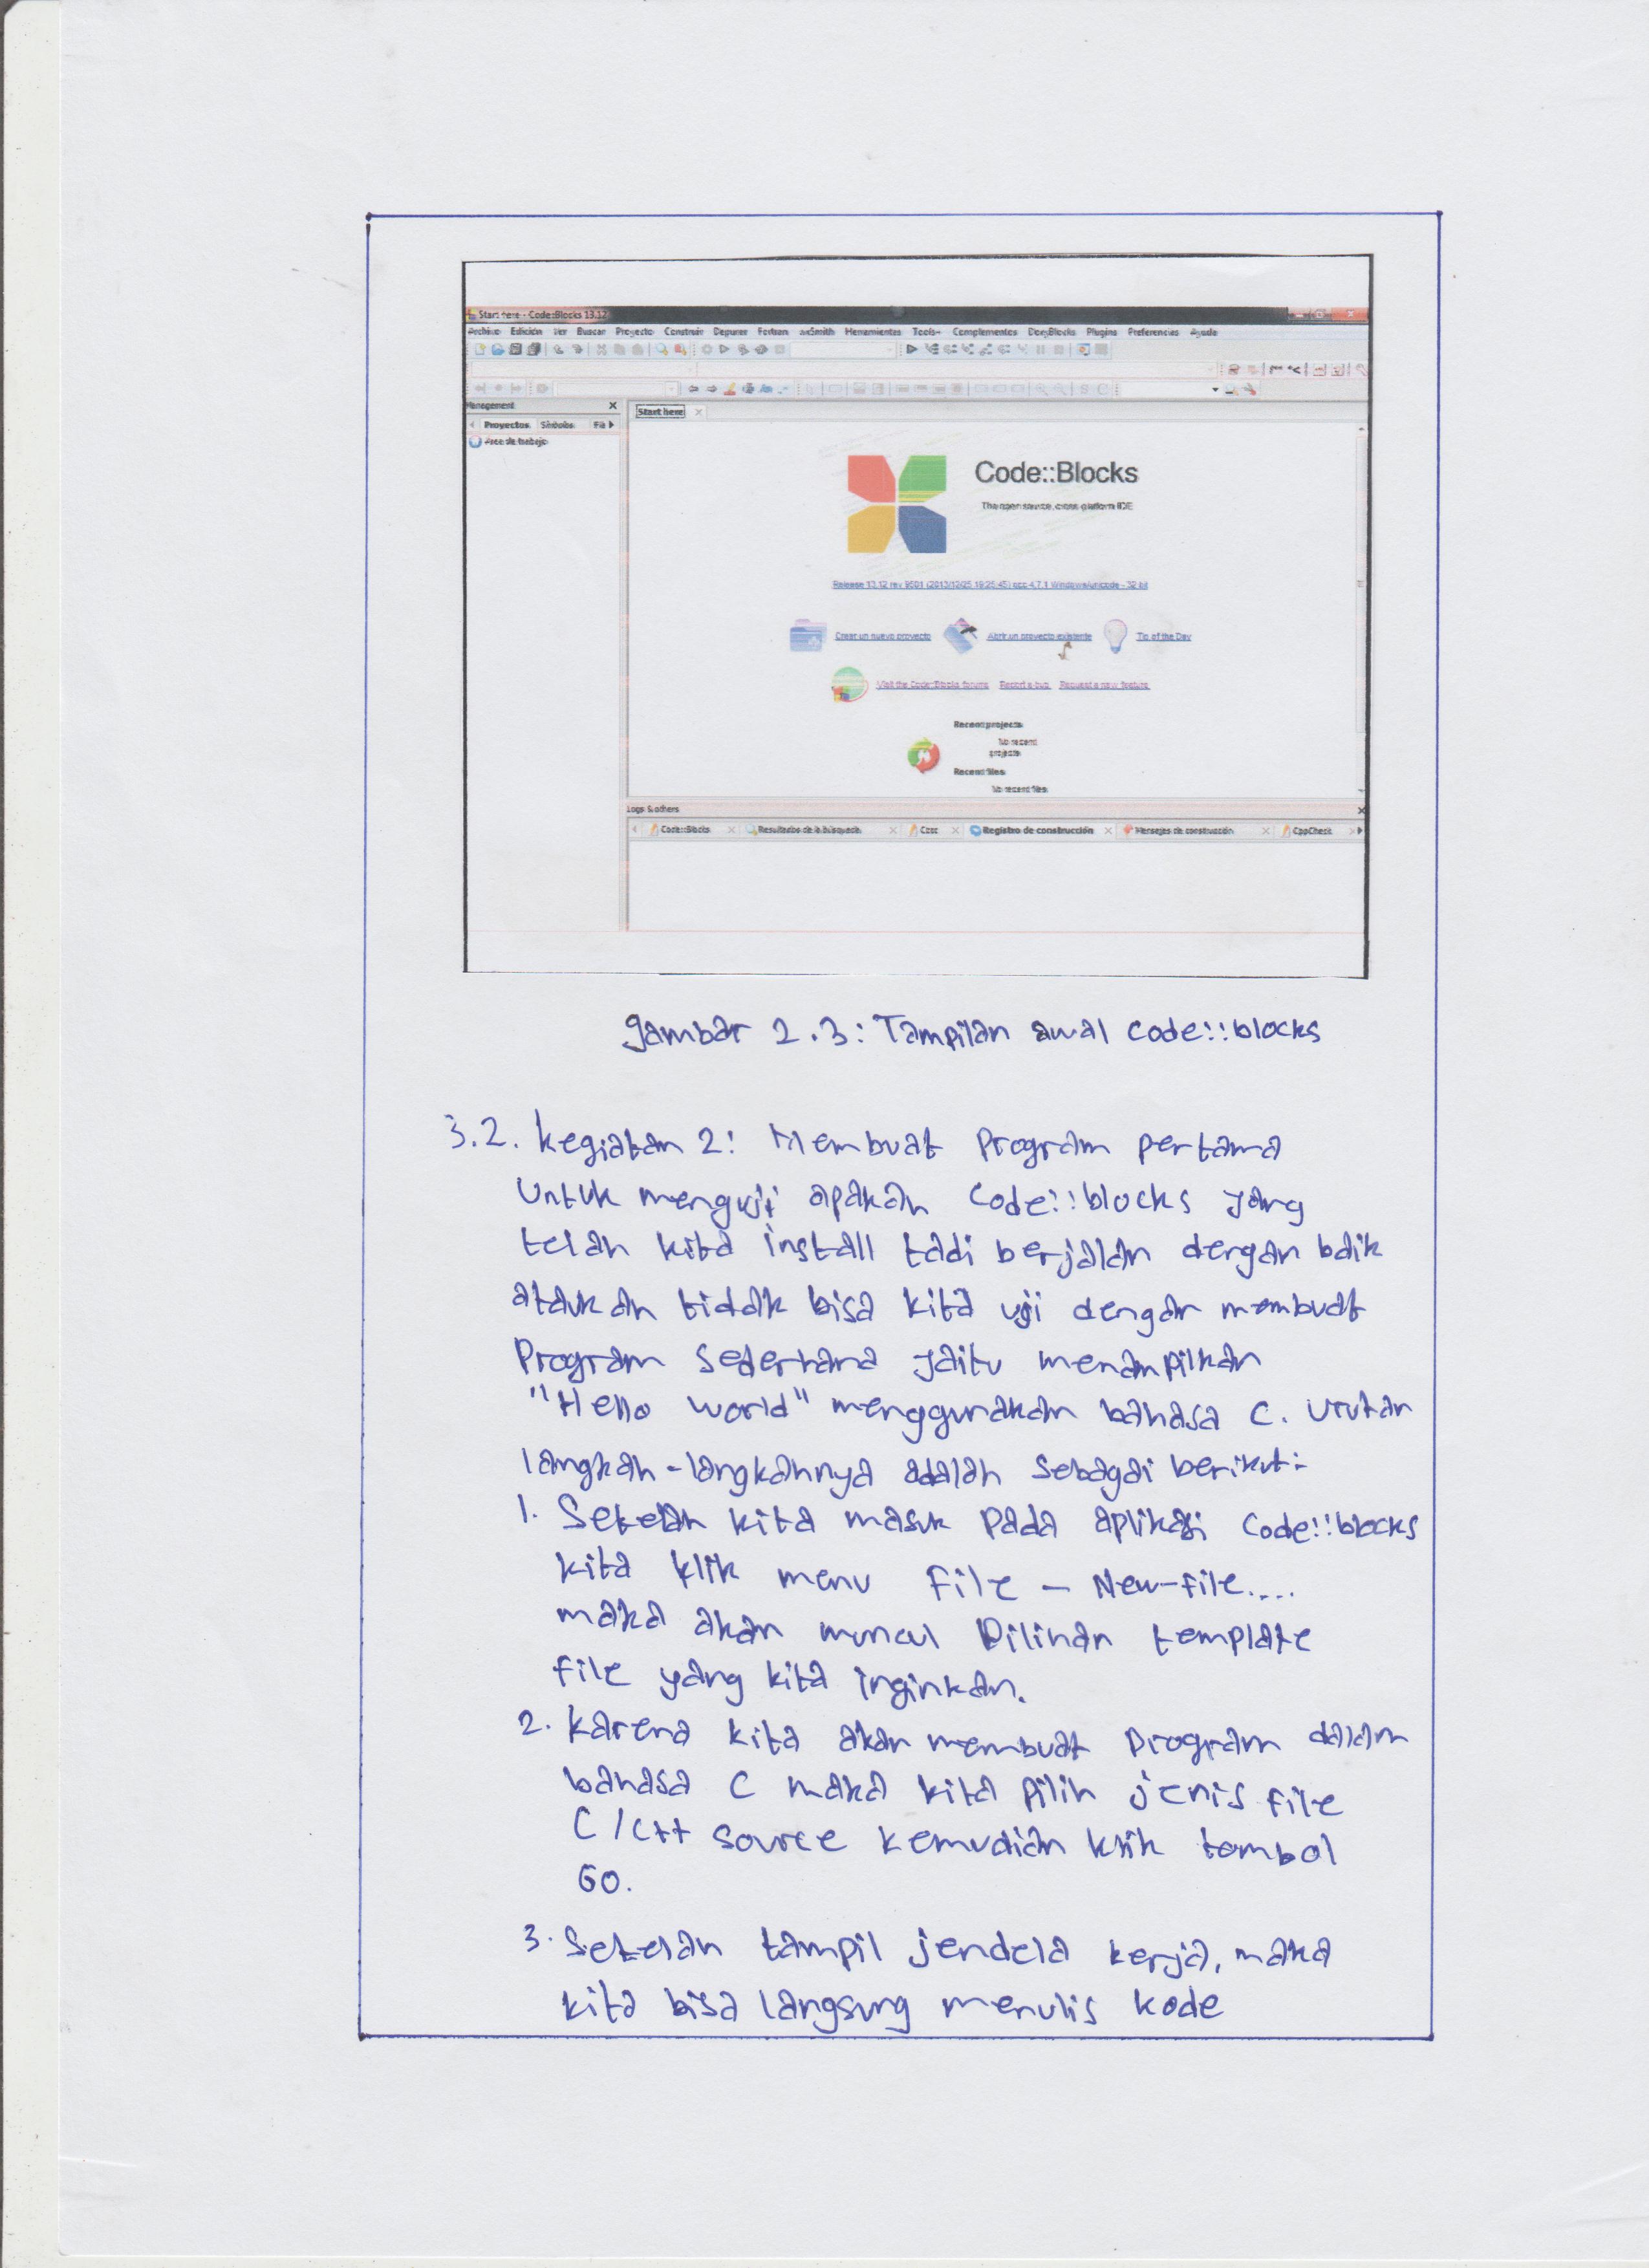 Start here - Code::Blocks 13.12
Archivo Edición Ver Buscar Proyecto Construir Depurar Fortran wxSmith Herramientas Tools+ Complementos DoxyBlocks Plugins Preferencias Ayuda
Management
Proyectos Símbolos
Start here
Code::Blocks
The open source, cross-platform IDE
Release 13.12 rev 9501 (2013/12/25 19:25:45) gcc 4.7.1 Windows/unicode - 32 bit
Crear un nuevo proyecto Abrir un proyecto existente Tip of the Day
Visit the Code::Blocks forums Report a bug Request a new feature
Recent projects
No recent
projects
Recent files
No recent files
Logs & others
Code::Blocks Resultados de la búsqueda Cccc Registro de construcción Mensajes de construcción CppCheck
gambar 2.3: Tampilan awal Code::blocks
3.2. kegiatan 2: Membuat Program pertama
Untuk menguji apakah Code::blocks yang
telah kita install tadi berjalan dengan baik
ataukah tidak bisa kita uji dengan membuat
Program Sederhana yaitu menampilkan
"Hello World" menggunakan bahasa C. Urutan
langkah-langkahnya adalah sebagai berikut:
1. Setelah kita masuk pada aplikasi Code::blocks
kita klik menu File - New-file....
maka akan muncul Pilihan template
file yang kita inginkan.
2. karena kita akan membuat program dalam
bahasa C maka kita pilih jenis file
C/C++ Source kemudian klik tombol
GO.
3. Setelah tampil jendela kerja, maka
kita bisa langsung menulis kode